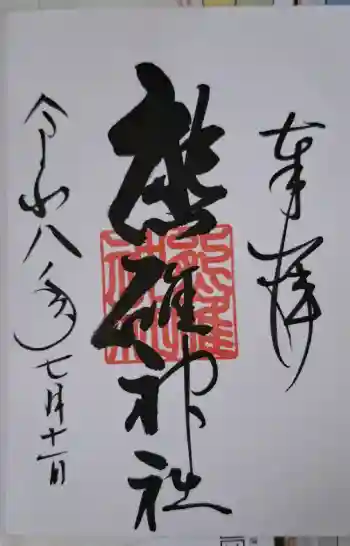 奉拝
熊碓神社
令和八年七月十一日